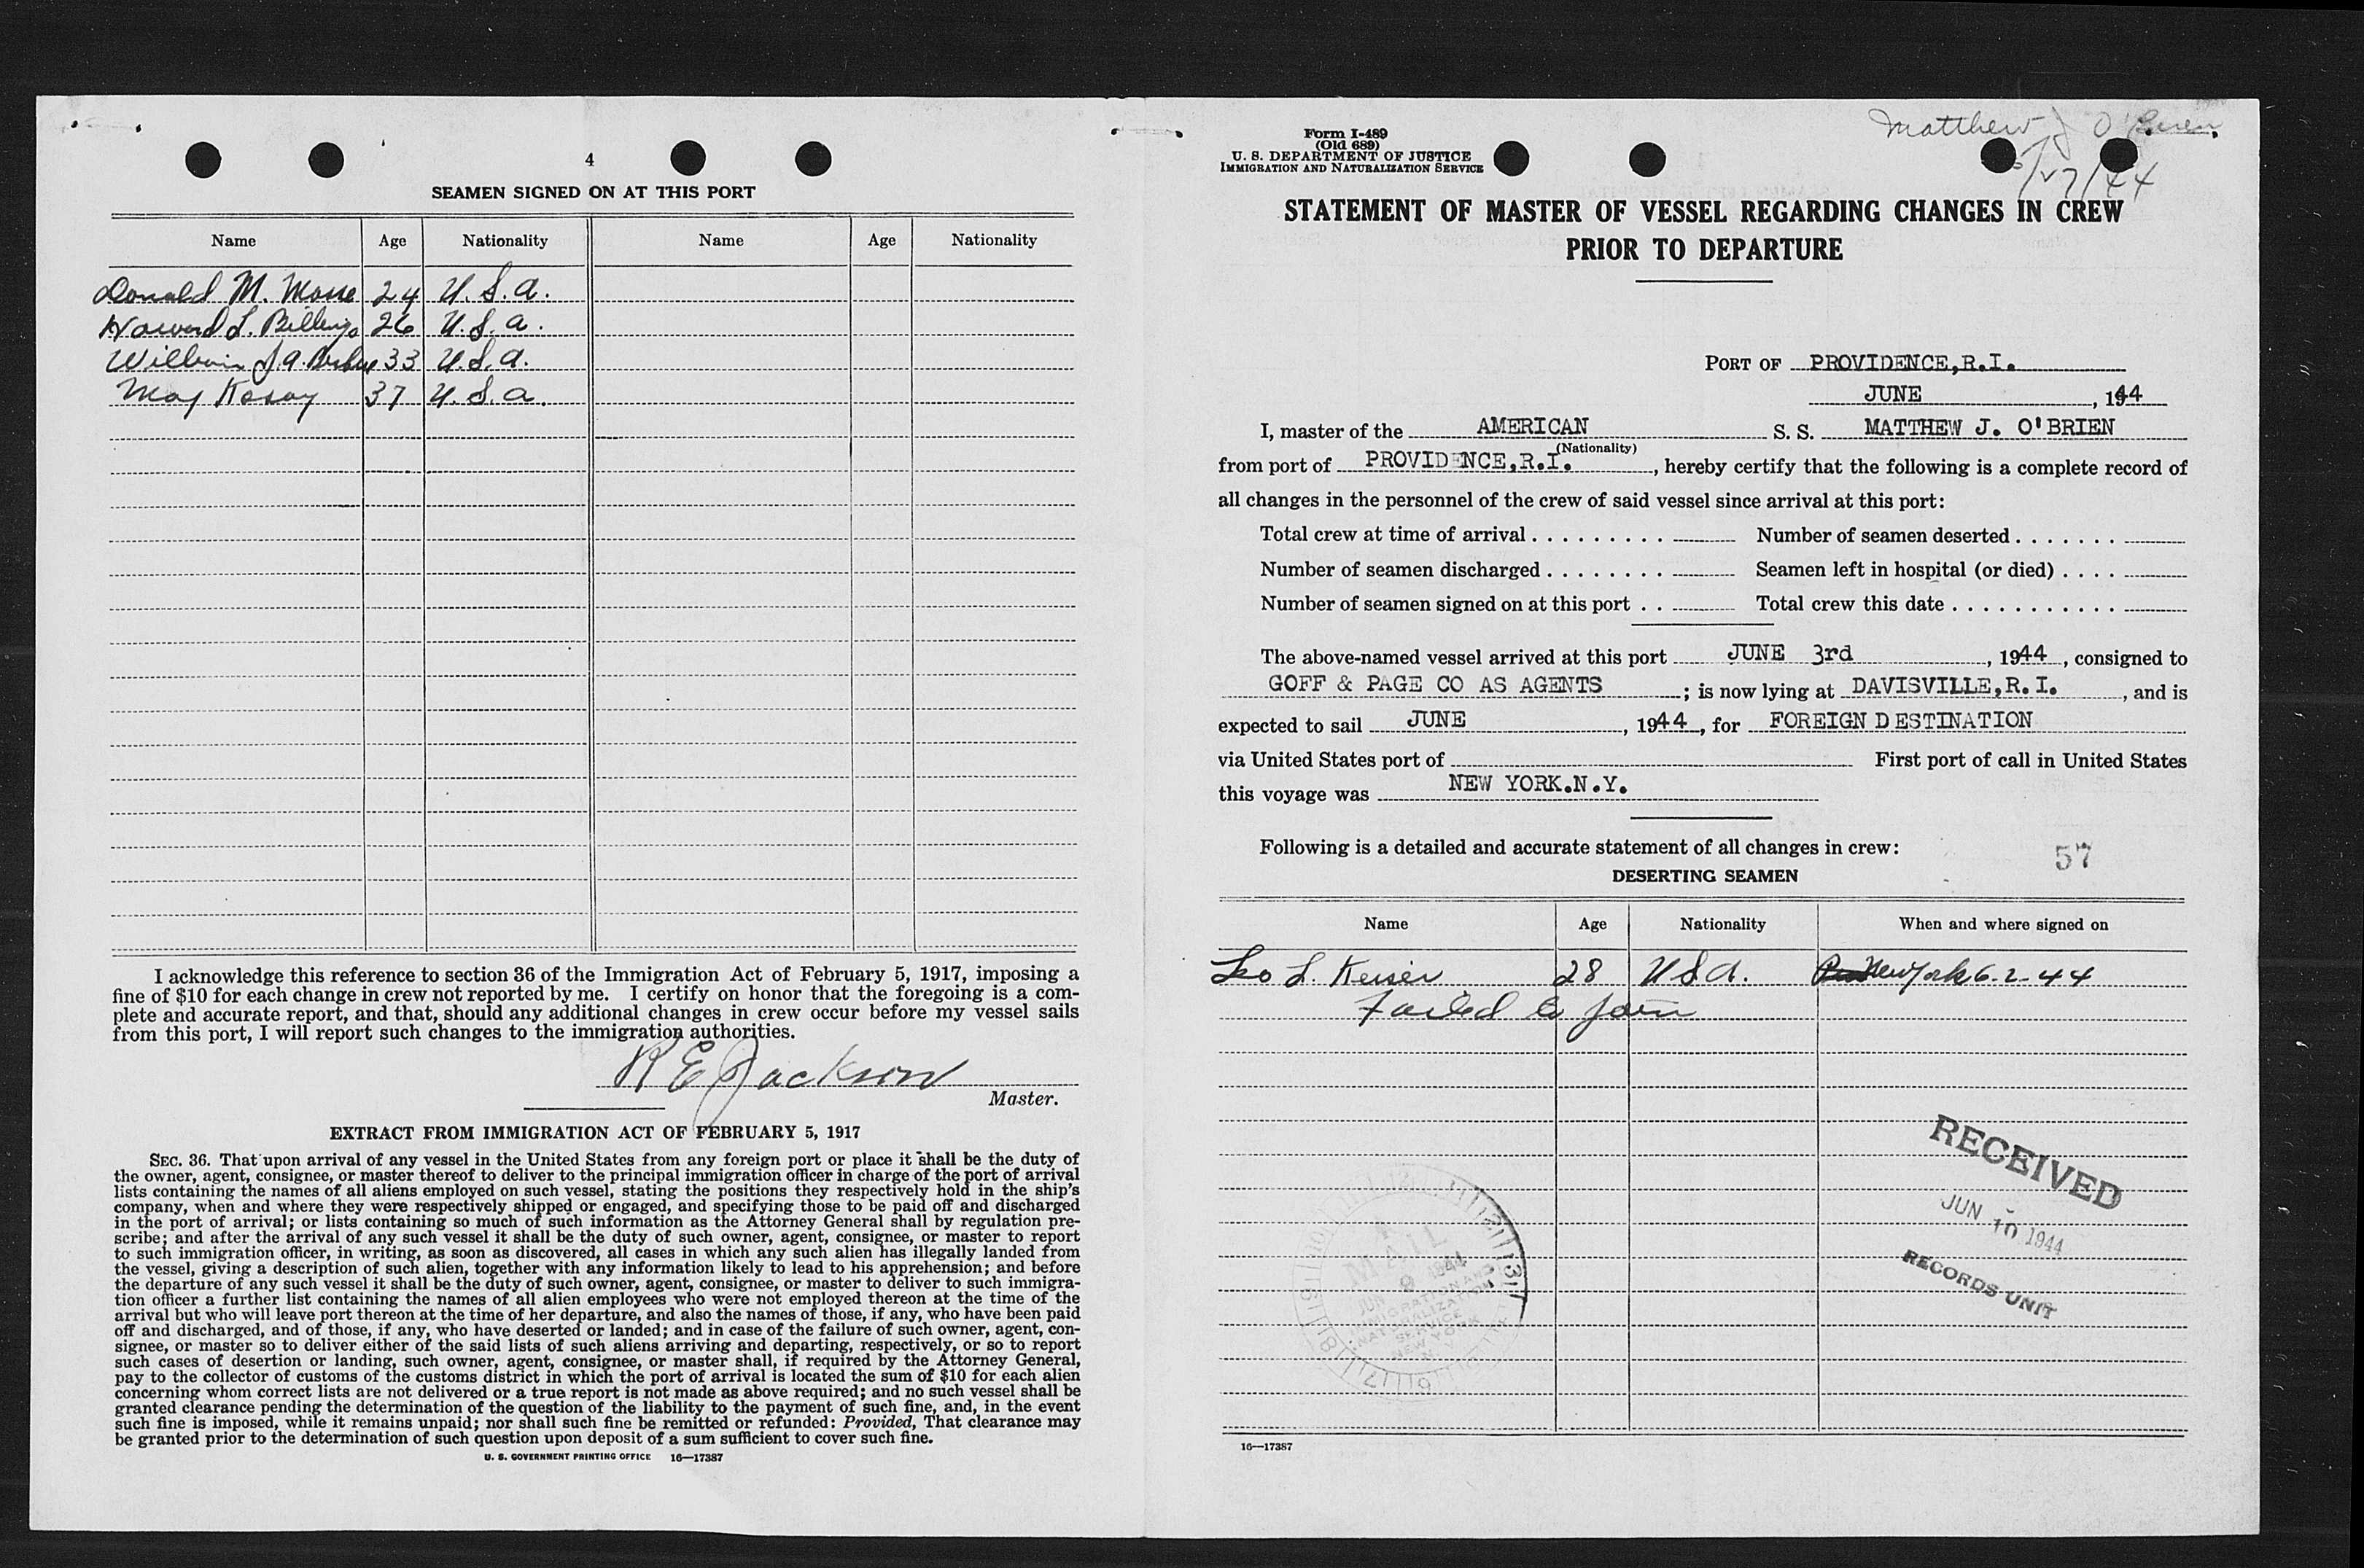 4
SEAMEN SIGNED ON AT THIS PORT
Name Age Nationality Name Age Nationality
Donald M. 24 U.S.A.
Howard L. Billings 26 U.S.A.
33 U.S.A.
37 U.S.A.
I acknowledge this reference to section 36 of the Immigration Act of February 5, 1917, imposing a
fine of $10 for each change in crew not reported by me. I certify on honor that the foregoing is a com-
plete and accurate report, and that, should any additional changes in crew occur before my vessel sails
from this port, I will report such changes to the immigration authorities.
R E Jackson
Master.
EXTRACT FROM IMMIGRATION ACT OF FEBRUARY 5, 1917
SEC. 36. That upon arrival of any vessel in the United States from any foreign port or place it shall be the duty of
the owner, agent, consignee, or master thereof to deliver to the principal immigration officer in charge of the port of arrival
lists containing the names of all aliens employed on such vessel, stating the positions they respectively hold in the ship's
company, when and where they were respectively shipped or engaged, and specifying those to be paid off and discharged
in the port of arrival; or lists containing so much of such information as the Attorney General shall by regulation pre-
scribe; and after the arrival of any such vessel it shall be the duty of such owner, agent, consignee, or master to report
to such immigration officer, in writing, as soon as discovered, all cases in which any such alien has illegally landed from
the vessel, giving a description of such alien, together with any information likely to lead to his apprehension; and before
the departure of any such vessel it shall be the duty of such owner, agent, consignee, or master to deliver to such immigra-
tion officer a further list containing the names of all alien employees who were not employed thereon at the time of the
arrival but who will leave port thereon at the time of her departure, and also the names of those, if any, who have been paid
off and discharged, and of those, if any, who have deserted or landed; and in case of the failure of such owner, agent, con-
signee, or master so to deliver either of the said lists of such aliens arriving and departing, respectively, or so to report
such cases of desertion or landing, such owner, agent, consignee, or master shall, if required by the Attorney General,
pay to the collector of customs of the customs district in which the port of arrival is located the sum of $10 for each alien
concerning whom correct lists are not delivered or a true report is not made as above required; and no such vessel shall be
granted clearance pending the determination of the question of the liability to the payment of such fine, and, in the event
such fine is imposed, while it remains unpaid; nor shall such fine be remitted or refunded: Provided, That clearance may
be granted prior to the determination of such question upon deposit of a sum sufficient to cover such fine.
U. S. GOVERNMENT PRINTING OFFICE 16—17387
Form I-489
(Old 689)
U. S. DEPARTMENT OF JUSTICE
IMMIGRATION AND NATURALIZATION SERVICE
Matthew J O'Brien
/27/44
STATEMENT OF MASTER OF VESSEL REGARDING CHANGES IN CREW
PRIOR TO DEPARTURE
PORT OF PROVIDENCE,R.I.
JUNE , 1944
I, master of the AMERICAN S. S. MATTHEW J. O'BRIEN
(Nationality)
from port of PROVIDENCE,R.I. , hereby certify that the following is a complete record of
all changes in the personnel of the crew of said vessel since arrival at this port:
Total crew at time of arrival . . . . . . . . . Number of seamen deserted . . . . . . .
Number of seamen discharged . . . . . . . . Seamen left in hospital (or died) . . . .
Number of seamen signed on at this port . . Total crew this date . . . . . . . . . . . .
The above-named vessel arrived at this port JUNE 3rd , 1944 , consigned to
GOFF & PAGE CO AS AGENTS ; is now lying at DAVISVILLE,R.I. , and is
expected to sail JUNE , 1944 , for FOREIGN DESTINATION
via United States port of First port of call in United States
this voyage was NEW YORK.N.Y.
Following is a detailed and accurate statement of all changes in crew:
57
DESERTING SEAMEN
Name Age Nationality When and where signed on
Leo L. Keiser 28 U S A. New York 6-2-44
Failed to join
RECEIVED
JUN 10 1944
RECORDS UNIT
MAIL
JUN 9 1944
IMMIGRATION AND
NATURALIZATION
SERVICE
NEW YORK
N. Y.
16—17387